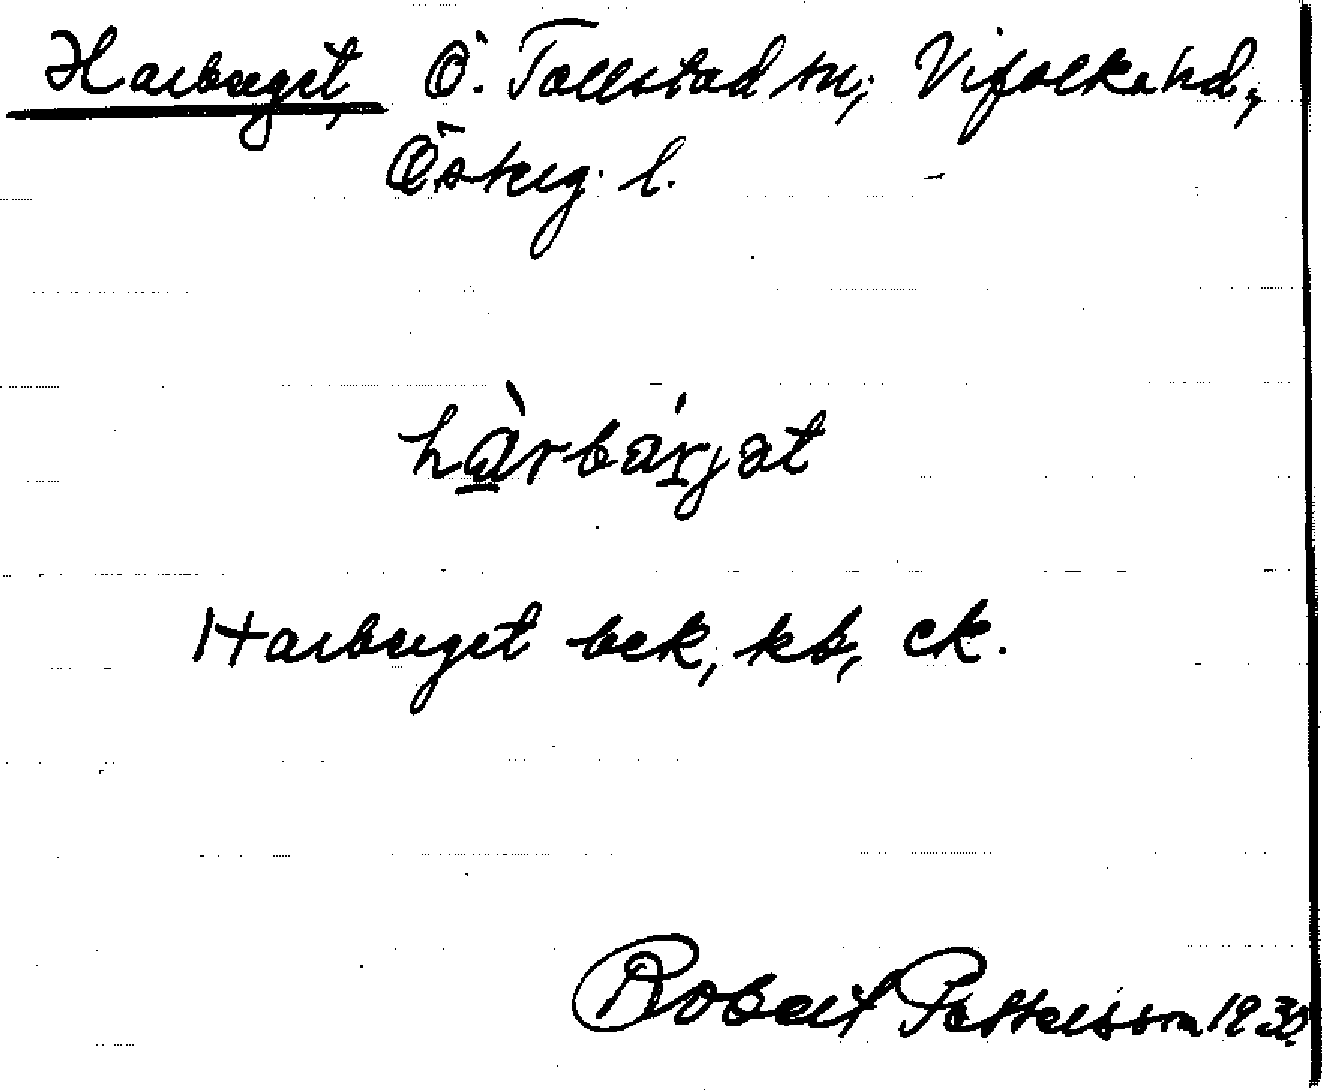 Harberget, Ö. Tollstad sn, Vifolka hd,
Österg. l.
hàrbárjət
Harberget bek, kb, ek.
Robert Pettersson 1930